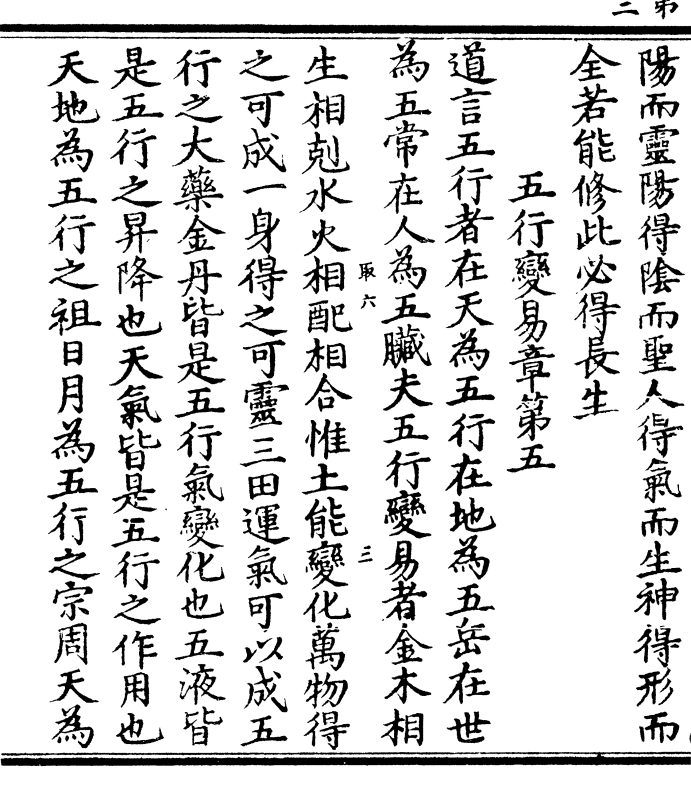 第二
陽而靈陽得陰而聖人得氣而生神得形而
全若能修此必得長生
五行變易章第五
道言五行者在天為五行在地為五岳在世
為五常在人為五臟夫五行變易者金木相
取六 三
生相剋水火相配相合惟土能變化萬物得
之可成一身得之可靈三田運氣可以成五
行之大藥金丹皆是五行氣變化也五液皆
是五行之昇降也天氣皆是五行之作用也
天地為五行之祖日月為五行之宗周天為